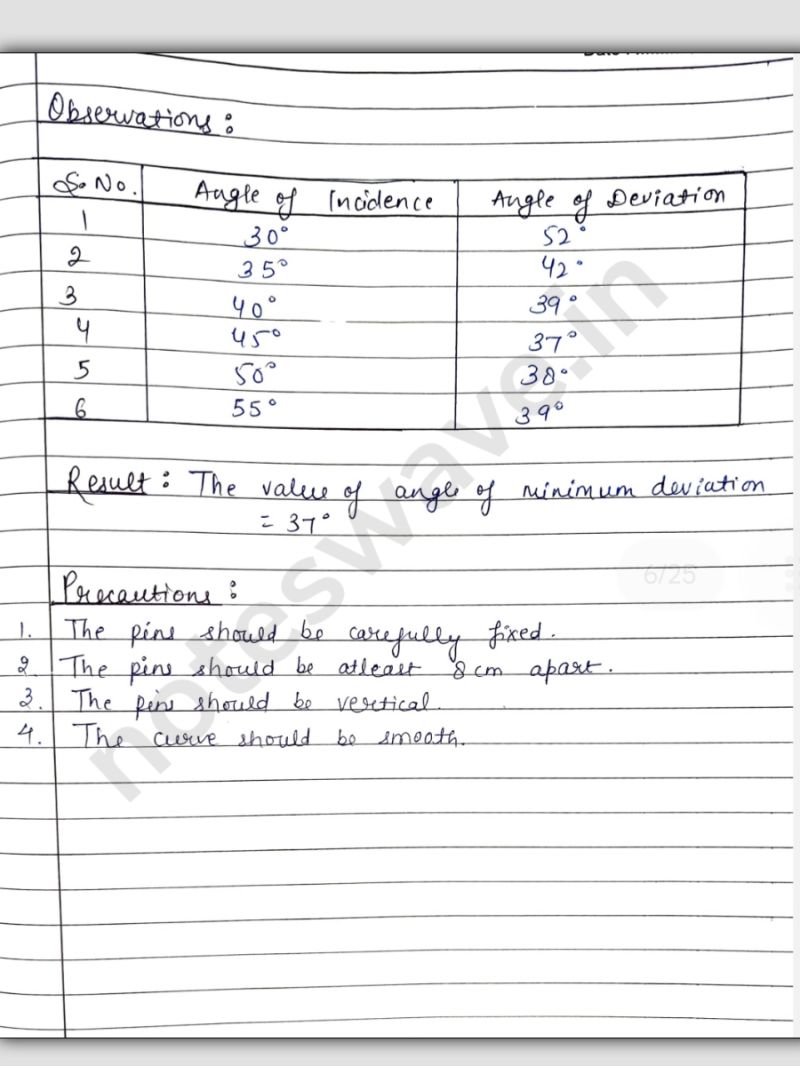 Observations :
S. No. Angle of Incidence Angle of Deviation
1 30° 52°
2 35° 42°
3 40° 39°
4 45° 37°
5 50° 38°
6 55° 39°
Result : The value of angle of minimum deviation
= 37°
6/25
Precautions :
1. The pins should be carefully fixed.
2. The pins should be atleast 8 cm apart.
3. The pins should be vertical.
4. The curve should be smooth.
noteswave.in